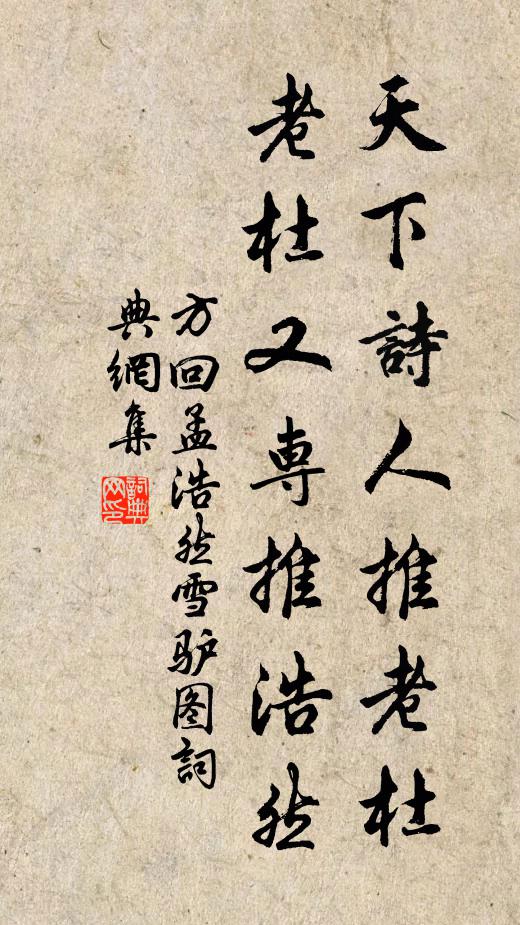 天下詩人推老杜
老杜又専推浩然
方回孟浩然雪驴图詞
典網集
詞典网印